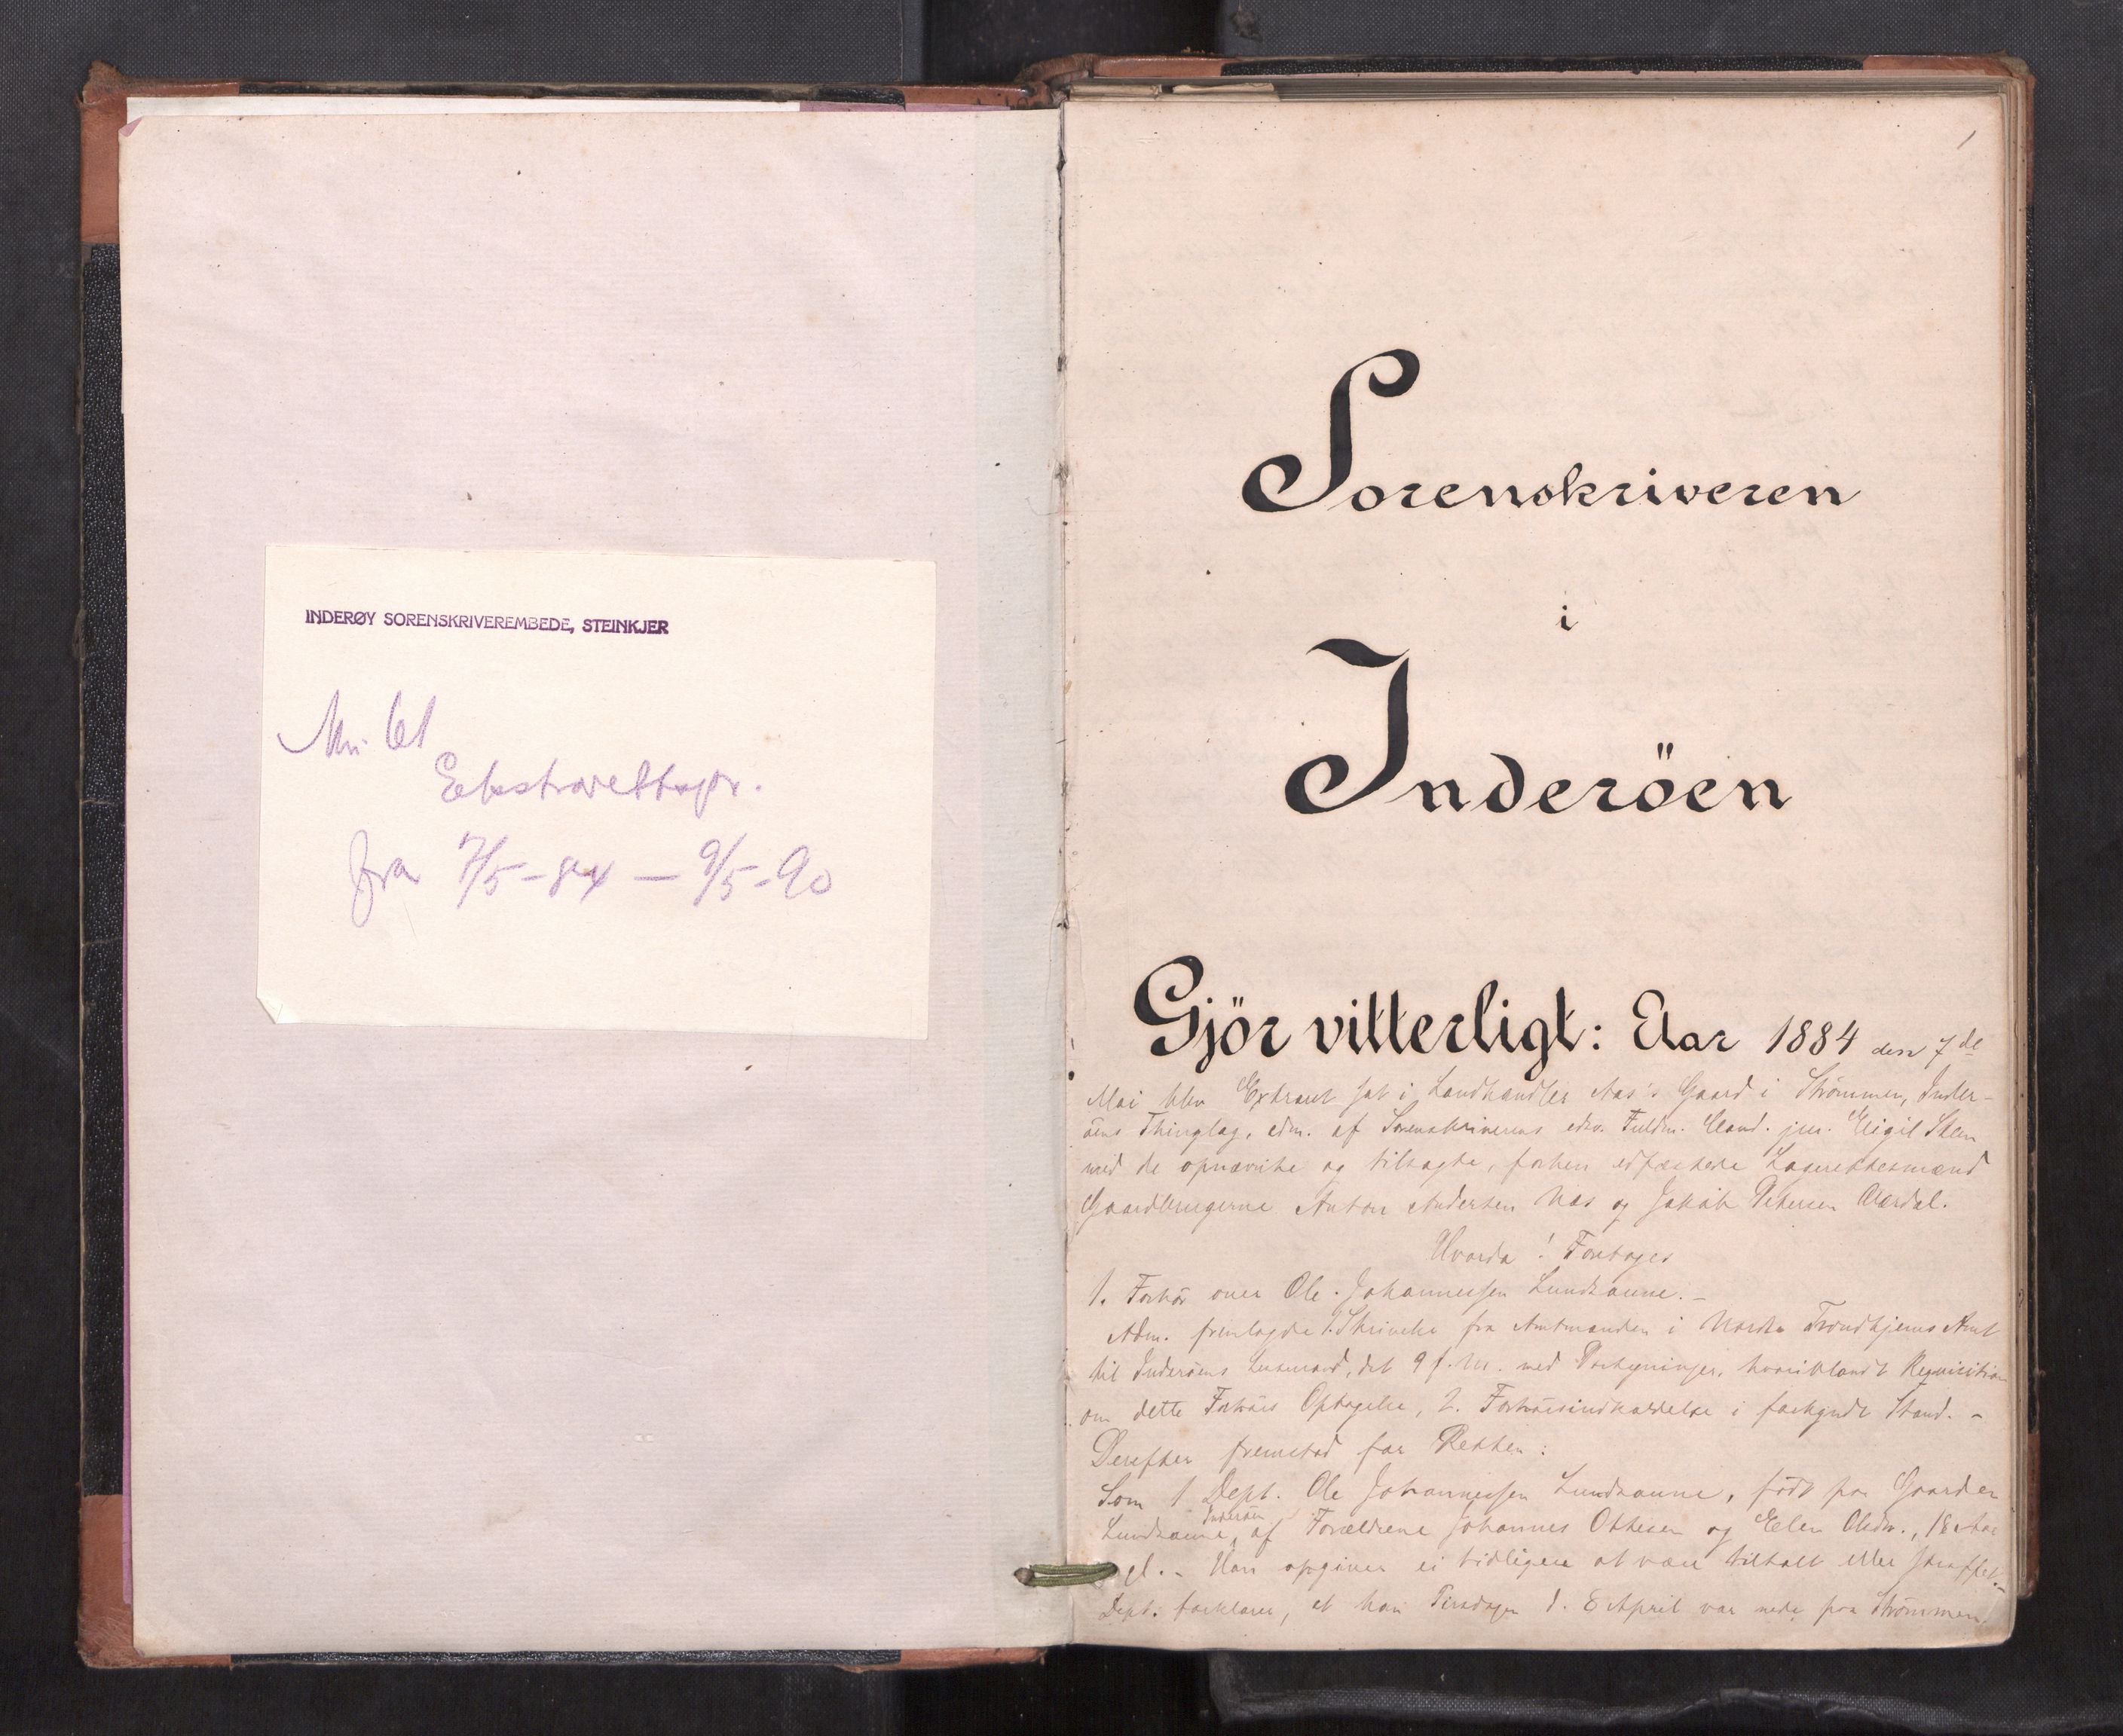 INDERØY SORENSKRIVEREMBEDE, STEINKJER
Ekstrarettspr.
fra 7/5-84 – 9/5-90
1
Sorenskriveren
i
Inderöen
Gjör vitterligt: Aar 1884 den 7de
Mai blev Extraret sat i Landhandler Aas's Gaard i Strömmen, Inder-
öens Thinglag, adm. af Sorenskriverens edsv. Fuldm. Cand. jur. Eigil
med de opnævnte og tilsagte, forhen edfæstede Lagrettesmænd
Gaardbrugerne Anton Andersen Næs og Jakob Petersen Aardal.
Hvorda! Foretoges
1. Forhör over Ole Johannessen Lundsaune. –
Adm. fremlagde 1. Skrivelse fra Amtmanden i Nordre Trondhjems Amt
til Inderöens Lensmand, dat 9 f. M. med Paategninger, hvoriblandt Requisition
om dette Forhörs Optagelse, 2. Forhörsindkaldelse i forkyndt Stand. –
Derefter fremstod for Retten:
Som 1 Dept. Ole Johannessen Lundsaune, födt paa Gaarden
Lundsaune, Inderöen af Forældrene Johannes Ottesen og Elen Olsdtr., 18 Aar
gl. – Han opgiver ei tidligere at være tiltalt eller straffet. –
Dept. forklarer, at han Tirsdagen d. 8 April var nede paa Strömmen,